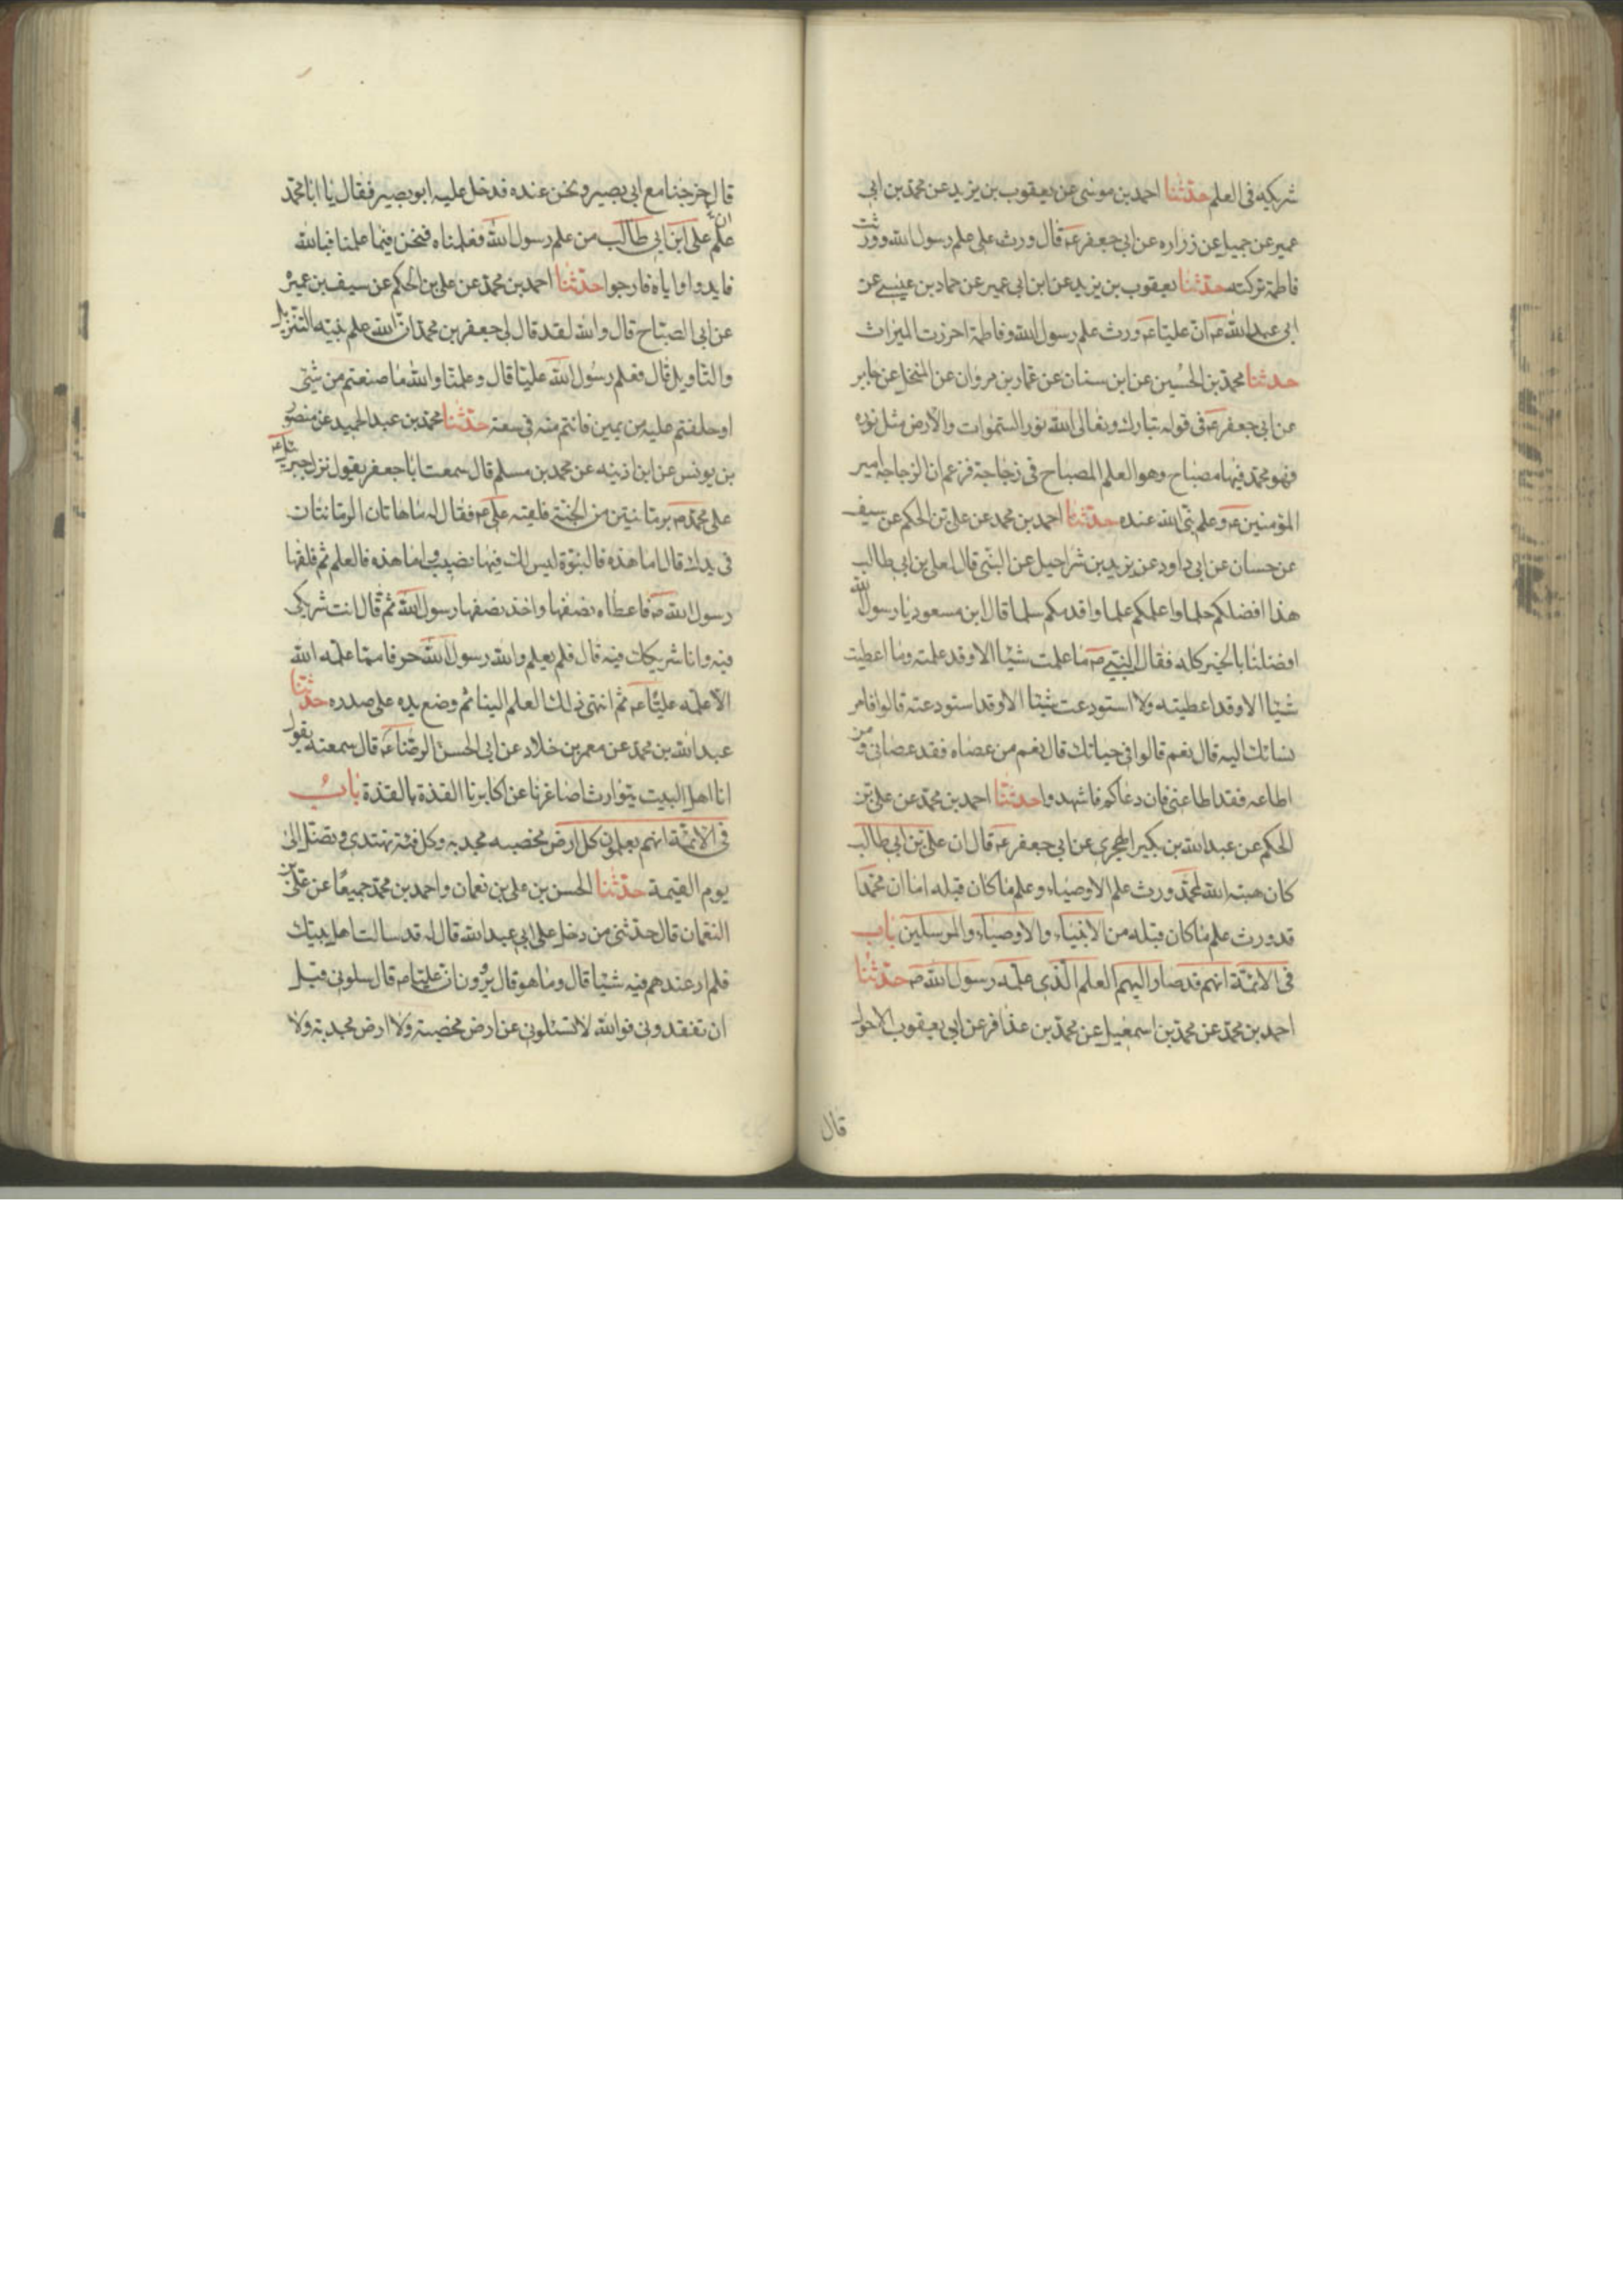 شريكه في العلم حدثنا احمد بن موسى عن يعقوب بن يزيد عن محمد بن ابي
عمير عن جميل عن زراره عن ابي جعفر عه قال ورث على علم رسول الله وورثت
فاطمة تركته حدثنا يعقوب بن يزيد عن ابن ابي عمير عن حماد بن عيسى عن
ابي عبد الله عه ان عليا عه ورث علم رسول الله وفاطمة احرزت الميراث
حدثنا محمد بن الحسين عن ابن سنان عن عمار بن مروان عن المنخل عن جابر
عن ابي جعفر عه في قوله تبارك وتعالى الله نور السموات والارض مثل نوره
فهو محمد فيها مصباح وهو العلم المصباح في زجاجة فزعم ان الزجاجه امير
المؤمنين عه وعلم نبي الله عنده حدثنا احمد بن محمد عن على بن الحكم عن سيف
عن حسان عن ابي داود عن يزيد بن شراحيل عن النبي قال لعلى بن ابي طالب
هذا افضلكم حلما واعلمكم علما واقدمكم سلما قال ابن مسعود يا رسول الله
افضلنا بالخير كله فقال النبي ص ما علمت شيئا الا وقد علمته وما اعطيت
شيئا الا وقد اعطيته ولا استودعت شيئا الا وقد استودعته قالوا فامر
نسائك اليه قال نعم قالوا في حياتك قال نعم من عصاه فقد عصاني ومن
اطاعه فقد اطاعني فان دعاكم فاشهدوا حدثنا احمد بن محمد عن على بن
الحكم عن عبد الله بن بكير الهجري عن ابي جعفر عه قال ان على بن ابي طالب
كان هبته الله لمحمد ورث علم الاوصياء وعلم ما كان قبله اما ان محمدا
قد ورث علم ما كان قبله من الانبياء والاوصياء والمرسلين باب
في الائمة انهم قد صار اليهم العلم الذي علمه رسول الله ص حدثنا
احمد بن محمد عن محمد بن اسمعيل عن محمد بن عذافر عن ابي يعقوب الاحول
قال
قال خرجنا مع ابي بصير ونحن عنده فدخل عليه ابو بصير فقال يا ابا محمد
ان علم على ابن ابي طالب من علم رسول الله فعلمناه فنحن فيما علمنا فبالله
فابدوا واياه فارجوا حدثنا احمد بن محمد عن على بن الحكم عن سيف بن عميره
عن ابي الصباح قال والله لقد قال لي جعفر بن محمد ان الله علم نبيه التنزيل
والتاويل قال فعلم رسول الله عليا قال وعلمنا والله ما صنعتم من شئ
او حلفتم عليه من يمين فانتم منه في سعة حدثنا محمد بن عبد الحميد عن منصور
بن يونس عن ابن اذينه عن محمد بن مسلم قال سمعت ابا جعفر يقول نزل جبرئيل عه
على محمد ص برمانتين من الجنة فلقيته على عه فقال له ما هاتان الرمانتان
في يدك قال اما هذه فالنبوة ليس لك فيها نصيب واما هذه فالعلم ثم فلقها
رسول الله ص فاعطاه نصفها واخذ نصفها رسول الله ثم قال انت شريكي
فيه وانا شريكك فيه قال فلم يعلم والله رسول الله حرفا مما علمه الله
الا علمه عليا عه ثم انتهى ذلك العلم الينا ثم وضع يده على صدره حدثنا
عبد الله بن محمد عن معمر بن خلاد عن ابي الحسن الرضا عه قال سمعته يقول
انا اهل البيت يتوارث اصاغرنا عن اكابرنا القذة بالقذة باب
في الائمة انهم يعلمون كل ارض مخصبه مجدبه وكل فئة تهتدي وتضل الى
يوم القيمة حدثنا الحسن بن على بن نعمان واحمد بن محمد جميعا عن على بن
النعمان قال حدثني من دخل على ابي عبد الله قال له قد سالت اهل بيتك
فلم ار عندهم فيه شيئا قال وما هو قال يروون ان عليا ص قال سلوني قبل
ان تفقدوني فوالله لا تسئلوني عن ارض مخصبة ولا ارض مجدبة ولا